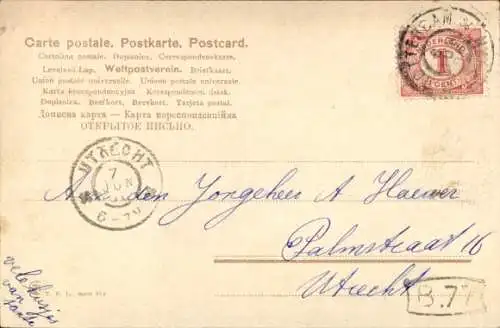 Carte postale. Postkarte. Postcard.
Cartolina postale. Dopisnica. Correspondenzkarte.
Levelezö Lap. Weltpostverein. Briefkaart.
Union postale universelle. Unione postale universale.
Karta korespondencyjna. Korespondenčni listek.
Dopisnica. Brefkort. Brevkort. Tarjeta postal.
Дописна карта — Карта корреспонденційна
ОТКРЫТОЕ ПИСЬМО.
1
UTRECHT
7
JUN
6-7V
Aan den Jongeheer A
Palmstraat 16
Utrecht
B.77
vele kusjes
van
tante